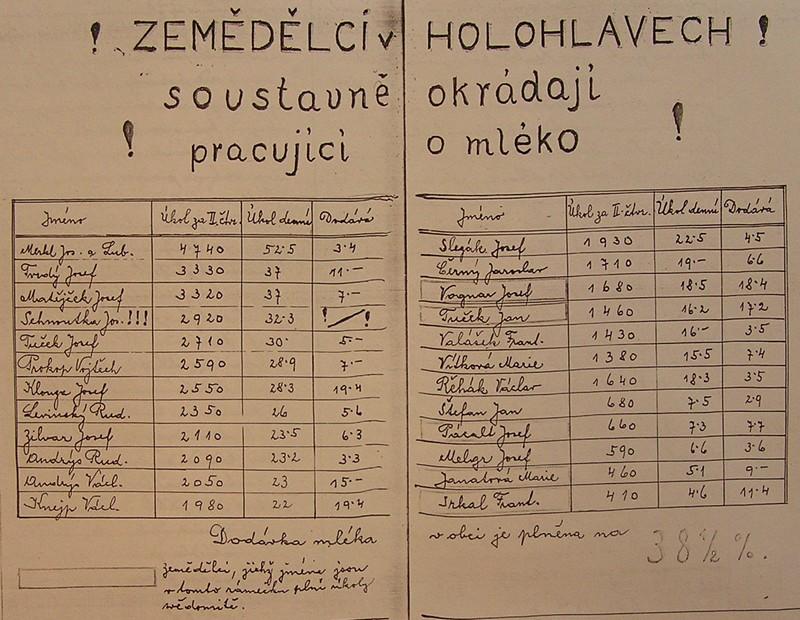 ! ZEMĚDĚLCI v HOLOHLAVECH !
soustavně okrádají
! pracující o mléko !
Jméno Úkol za II. čtvr. Úkol denně Dodává
Merkl Jos. a Lub. 4740 52·5 3·4
Tvrdý Josef 3330 37 11·—
Matějček Josef 3320 37 7·—
Schmutka Jos.!!! 2920 32·3 !—!
Tuček Josef 2710 30· 5·—
Prokop Vojtěch 2590 28·9 7·—
Klouza Josef 2550 28·3 19·4
Levinský Rud. 2350 26 5·6
Zilvar Josef 2110 23·5 6·3
Andrýs Rud. 2090 23·2 3·3
Andrýs Václ. 2050 23 15·—
Knejp Václ. 1980 22 19·4
Jméno Úkol za II. čtvr. Úkol denně Dodává
Slezák Josef 1930 22·5 4·5
Černý Jaroslav 1710 19·— 6·6
Vognar Josef 1680 18·5 18·4
Tuček Jan 1460 16·2 17·2
Valášek Frant. 1430 16·— 3·5
Vítková Marie 1380 15·5 7·4
Řehák Václav 1640 18·3 3·5
Štefan Jan 680 7·5 2·9
Josef 660 7·3 7·7
Melgr Josef 590 6·6 3·6
Janatová Marie 460 5·1 9·—
Frant. 410 4·6 11·4
Dodávka mléka v obci je plněna na 38½%.
zemědělci, jichž jména jsou
v tomto rámečku plní úkoly
svědomitě.